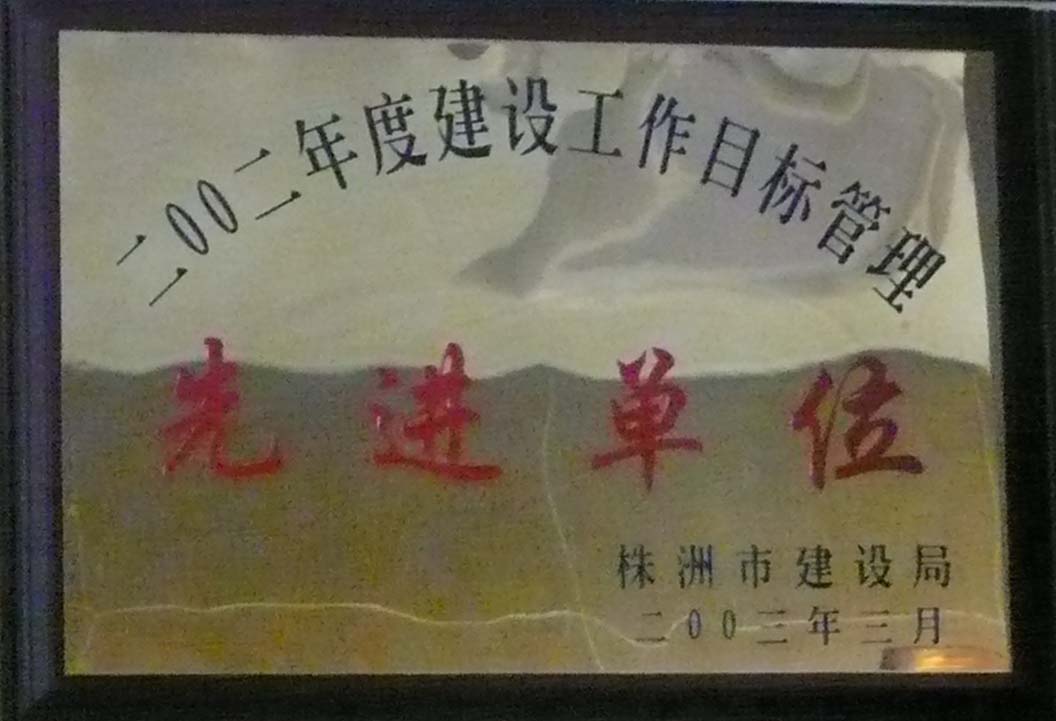 二00二年度建设工作目标管理
先进单位
株洲市建设局
二00三年三月